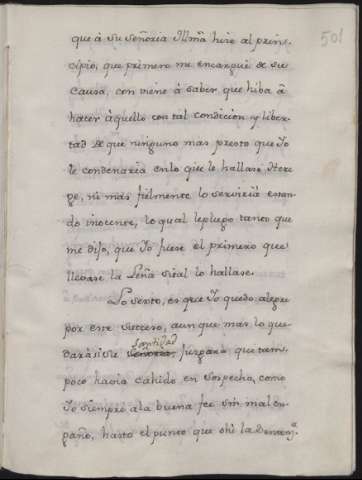 501
que à su señoria Illmã hize al prin-
cipio, que primero me encargue de su
causa, con viene à saber, que hiba à
hacer àquello con tal condicion y liber-
tad de que ninguno mas presto que Yo
le condenaria en lo que le hallase Here
ge, ni mas fielmente lo serviria estan-
do inocente, lo qual le plugo tanto que
me dijo, que Yo fuese el primero que
llevase la Leña si tal lo hallase.
Lo sexto, es que Yo quedo alegre
por este succeso, aunque mas lo que-
dara si su Santidad señoria juzgara que tam-
poco havia cahido en sospecha, como
Yo siempre a la buena fee sin mal en-
gaño, hasta el punto que ohi la